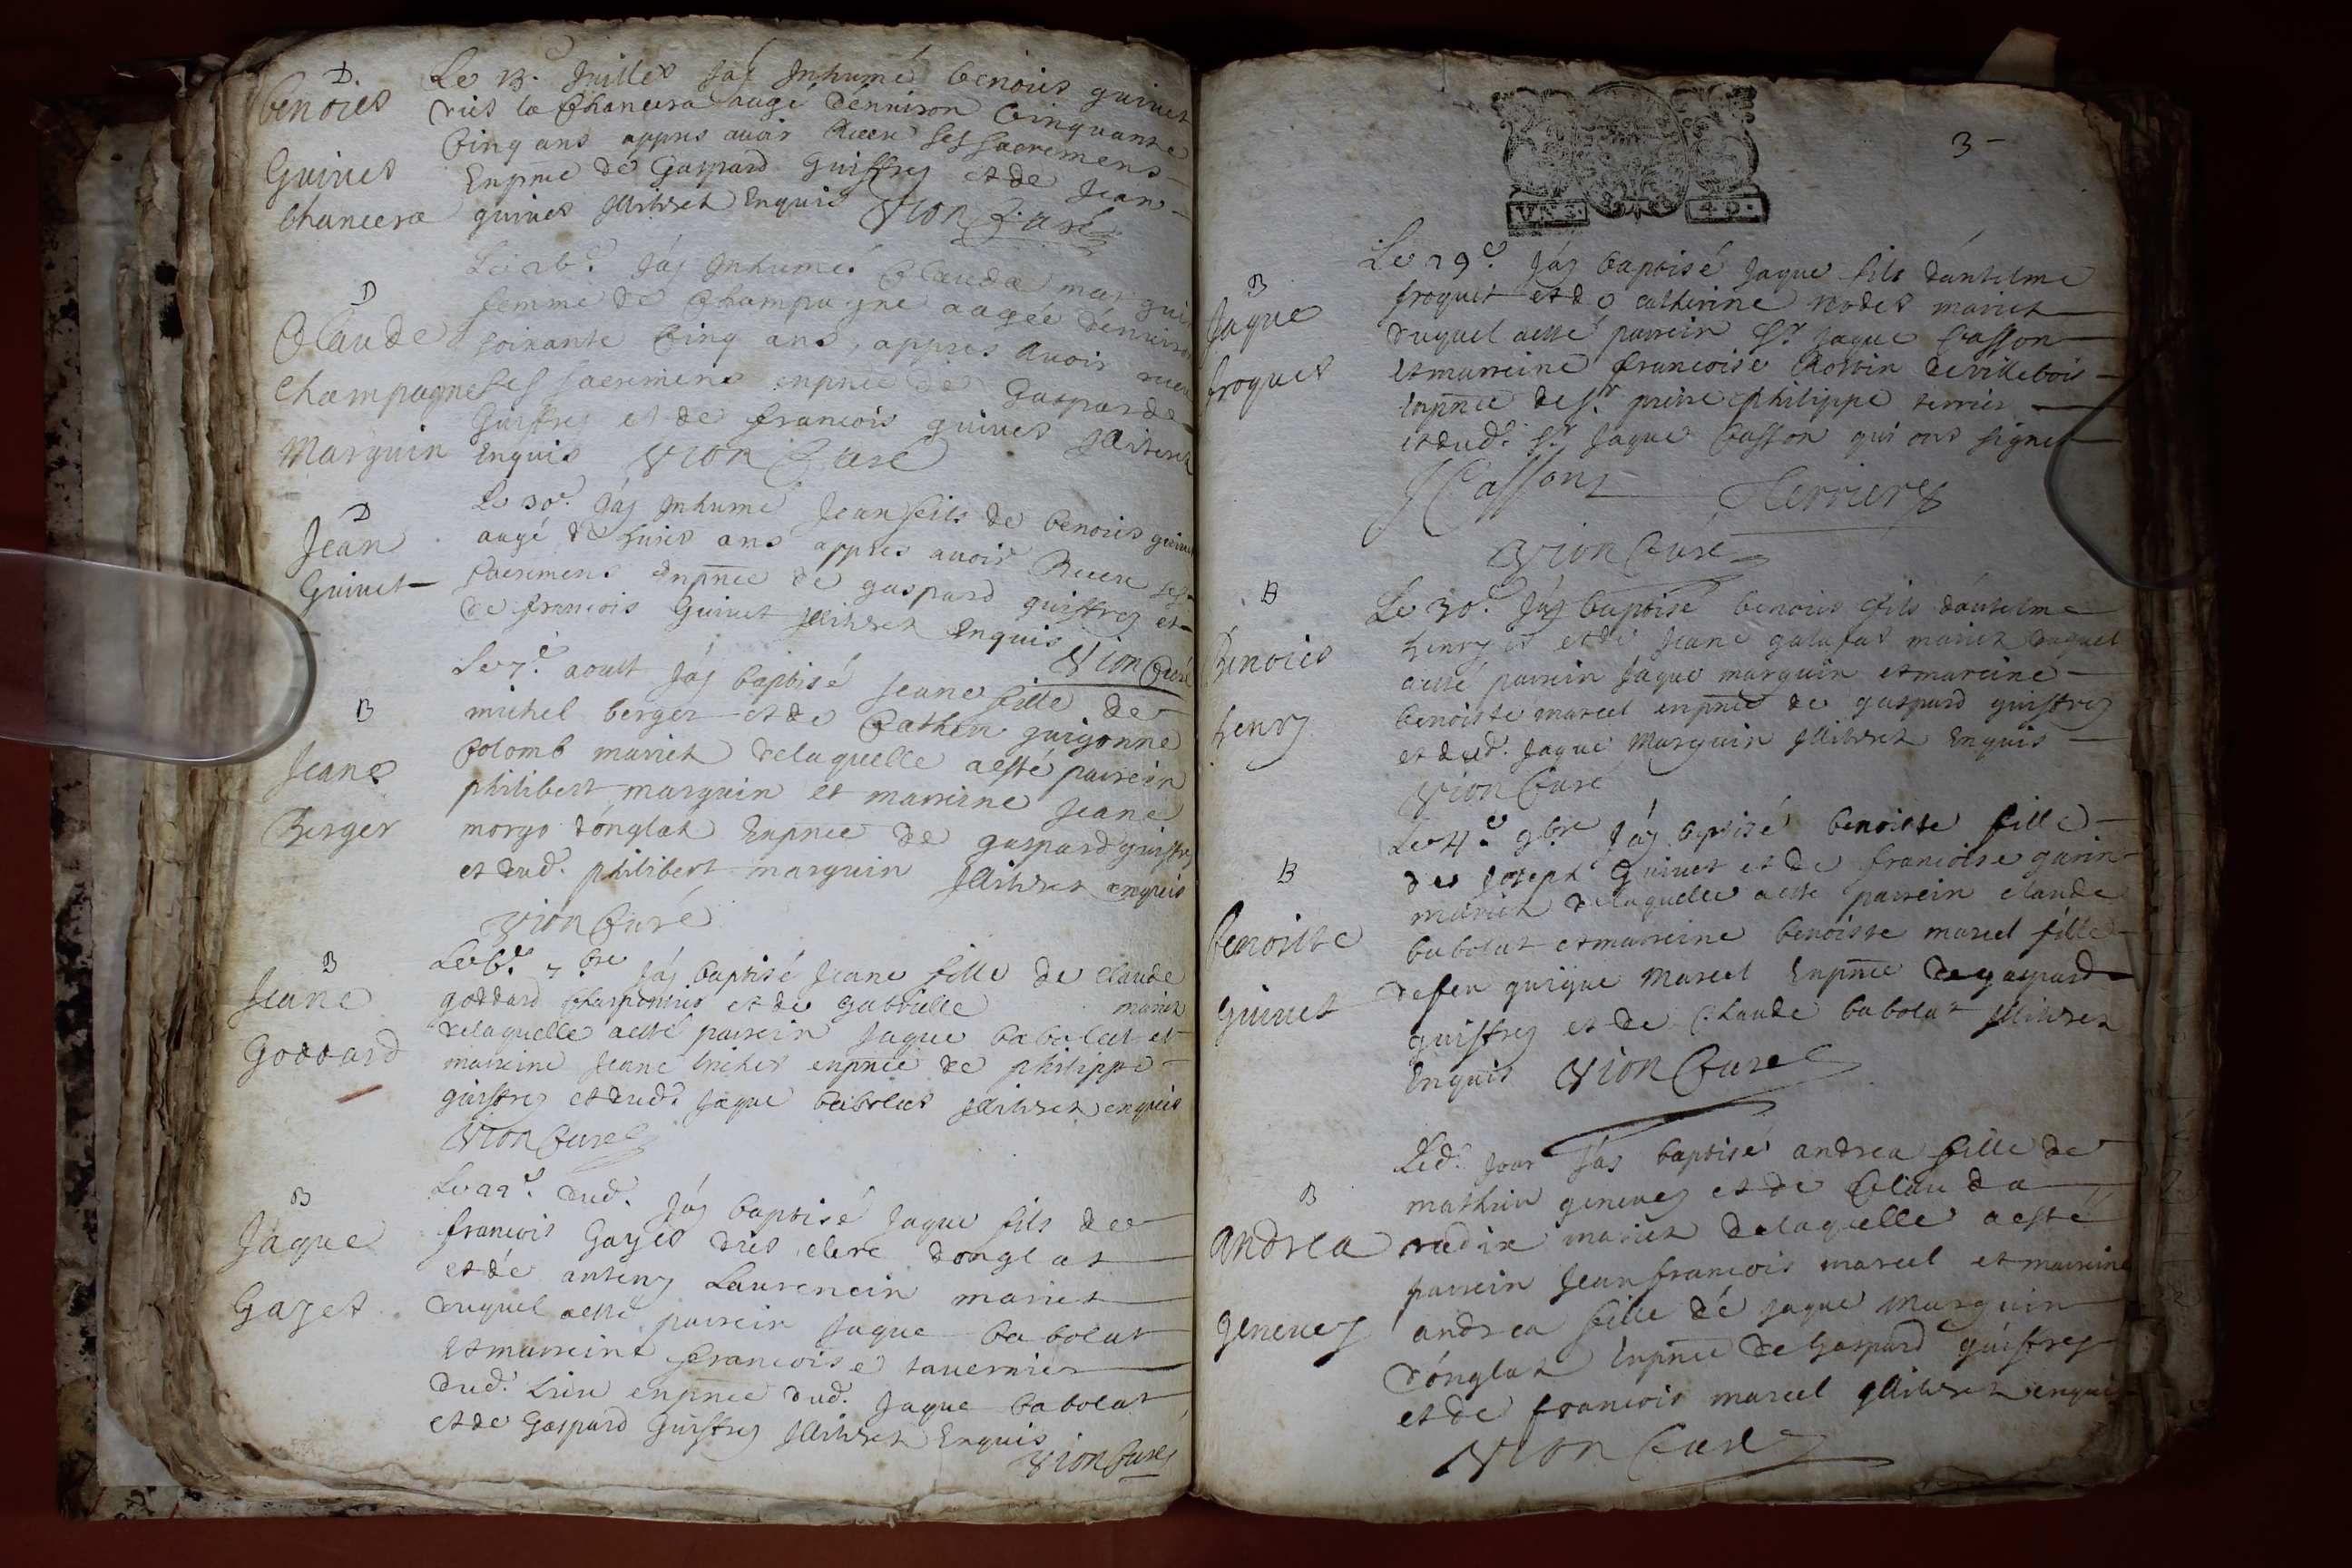 D.
Benoict
Guinet
chancera
Le 13. Juillet Jáy Inhumé benoict guinet
dict la Chancera aagé dénuiron Cinquante
Cinq ans appres auoir Receu ses sacremens
Enpnce de Gaspard Guiffrey et de Jean
guinet Illitérés Enquis VION Curé
D
Claude
Champagne
Marguin
Le 26e. Jáy Inhumé Clauda marguin
femme de Champagne aagée dénuiron
soixante Cinq ans, appres Auoir receu
ses sacremens enpnce de Gasparde
Guiffrey et de francois guinet Illiterés
Enquis VION Curé
D
Jean
Guinet
Le 30e. Jáy Inhumé Jean fils de benoict guinet
aagé de huict ans appres auoir Receu ses
Sacremens Enpnce de gaspard guiffrey et
de francois Guinet Illitérés Enquis
VION Curé
B
Jeane
Berger
Le 7e. aoust Jáy baptisé Jeane fille de
michel berger et de Cathin guigonne
Colomb mariés delaquelle aesté parrein
philibert marguin et marreine Jeane
morgo dónglas Enpnce de gaspard guiffrey
et dud. philibert marguin Illitérés enquis
VION Curé
B
Jeane
Goddard
Le 6e. 7bre Jáy baptisé Jeane fille de claude
goddard Charpentier et de gabrielle mariés
delaquelle aesté parrein Jaque babolat et
marreine Jeane enpnce de philippe
guiffrey et dud. Jaque babolat Illitérés enquis
VION Curé
B
Jaque
Gazet
Le 22e. dud. Jáy baptisé Jaque fils de
francois Gazet dict clerc donglas
et dé anteny Laurencin mariés
duquel aesté parrein Jaque babolat
et marreine francoise tauernier
dud. Lieu enpnce dud. Jaque babolat
et de Gaspard Guiffrey Illitérés Enquis
VION Curé
3
VN S. 4 D.
B
Jaque
froquet
Le 29e. Jáy baptisé Jaque fils dántelme
froquet et de catherine rodet mariés
duquel aesté parrein Sr. Jaque Casson
et marreine francoise Rostin de villebois
enpnce de Sr. prire philippe terrier
et dud. Sr. Jaque Casson qui ont signés
J Casson Terrier
VION Curé
B
Benoict
henry
Le 30e. Jáy baptisé benoict fils dántelme
henry et de Jeane galafat mariés duquel
aesté parrein Jaque marguin et mareine
benoiste marcel enpnce de gaspard guiffrey
et dud. Jaque Marguin Illitérés Enquis
VION Curé
B
Benoiste
Guinet
Le 4e. 9bre Jáy baptisé benoiste fille
de Joseph Guinet et de francoise garin
mariés delaquelle aesté parrein claude
babolat et marreine benoiste marcel fille
defeu guigue Marcel Enpnce de gaspard
guiffrey et de Claude babolat Illitérés
Enquis VION Curé
B
Andrea
geneuey
Led. Jour Jáy baptisé andrea fille de
mathieu geneuey et de Clauda
radix mariés delaquelle aesté
parrein Jean francois marcel et marreine
andrea fille dé Jaque Marguin
dónglas Enpnce de Gaspard guiffrey
et de francois marcel Illitérés enquis
VION Curé